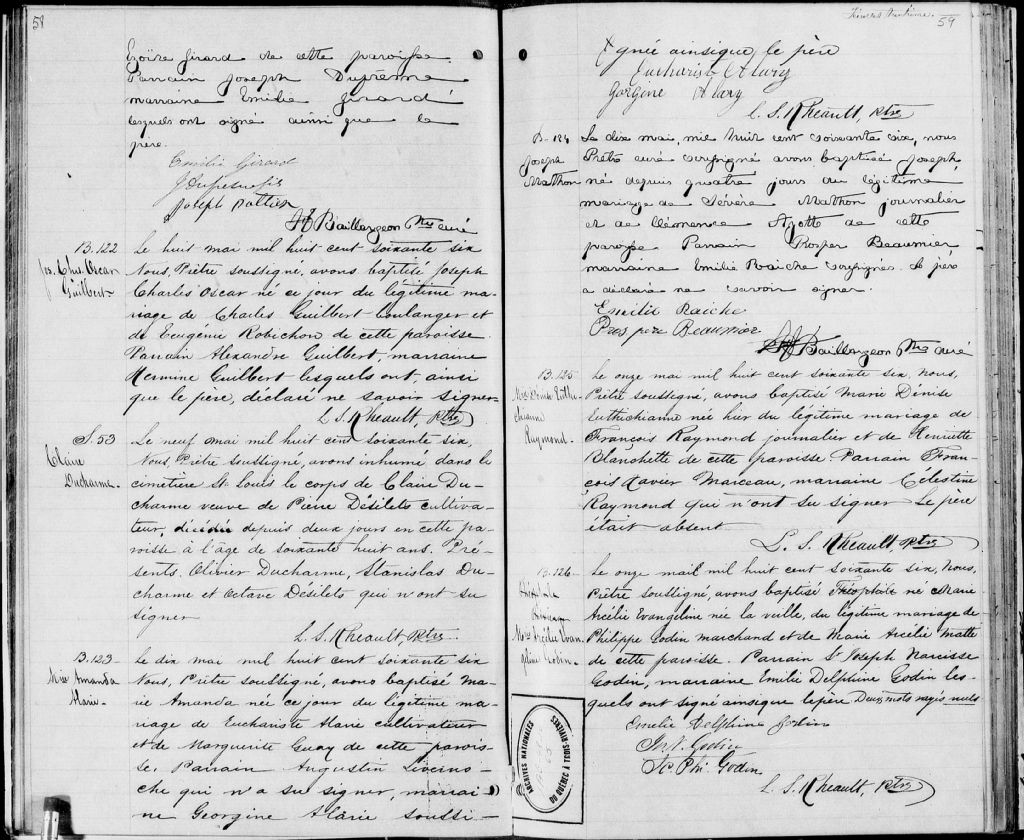 58
Ezoïre Girard de cette paroisse.
Parrain Joseph Dufresne
marraine Emilie Girard
lesquels ont signé ainsi que le
père.
Emilie Girard
J Dufresne fils
Joseph Pottier
Baillargeon Ptre curé
B. 122
Jos. Chs. Oscar
Guilbert
Le huit mai mil huit cent soixante six
Nous, Prêtre soussigné, avons baptisé Joseph
Charles Oscar né ce jour du légitime ma-
riage de Charles Guilbert boulanger et
de Eugénie Robichon de cette paroisse.
Parrain Alexandre Guilbert, marraine
Hermine Guilbert lesquels ont, ainsi
que le père, déclaré ne savoir signer
L. S. Rheault, Ptre
S. 53
Claire
Ducharme.
Le neuf mai mil huit cent soixante six,
Nous, Prêtre soussigné, avons inhumé dans le
cimetière St Louis le corps de Claire Du-
charme veuve de Pierre Désilets cultiva-
teur, décédée depuis deux jours en cette pa-
roisse à l'âge de soixante huit ans. Pré-
sents Olivier Ducharme, Stanislas Du-
charme et Octave Désilets qui n'ont su
signer
L. S. Rheault, Ptre.
B. 123
Mie Amanda
Alarie.
Le dix mai mil huit cent soixante six
Nous, Prêtre soussigné, avons baptisé Ma-
rie Amanda née ce jour du légitime ma-
riage de Euchariste Alarie cultivateur
et de Marguerite Guay de cette parois-
se. Parrain Augustin Liverno-
che qui n'a su signer, marrai-
ne Georgine Alarie soussi-
59
gnée ainsique le père
Eucharist Alary
Gorgine Alary
L. S. Rheault, Ptre
B. 124
Joseph
Mathon
Le dix mai, mil huit cent soixante six, nous
Prêtre curé soussigné avons baptisé Joseph
né depuis quatre jours du légitime
mariage de Sévère Mathon journalier
et de Clémence Ayotte de cette
paroisse Parrain Prosper Beaumier
marraine Emilie Raiche soussignés. Le père
a déclaré ne savoir signer.
Emilie Raiche
Prospere Beaumier
Baillargeon Ptre curé
B. 125
Raymond.
Le onze mai mil huit cent soixante six, Nous,
Prêtre soussigné, avons baptisé Marie Dénise
Euthichianne née hier du légitime mariage de
François Raymond journalier et de Henriette
Blanchette de cette paroisse Parrain Fran-
çois Xavier Marceau, marraine Célestine
Raymond qui n'ont su signer Le père
était absent
L. S. Rheault, Ptre
B. 126
Mie Arcélie Evan
géline Godin.
Le onze mail mil huit cent soixante six, Nous,
Prêtre soussigné, avons baptisé Théophile né Marie
Arcélie Evangeline née la veille, du légitime mariage de
Philippe Godin marchand et de Marie Arcélie Matte
de cette paroisse. Parrain St Joseph Narcisse
Godin, marraine Emilie Delphine Godin les-
quels ont signé ainsique le père Deux mots rayés nuls
Emelie Delphine Godin
Jos. N. Godin
Ph. Godin
L. S. Rheault, Ptre
ARCHIVES NATIONALES
DU QUÉBEC À TROIS-RIVIÈRES